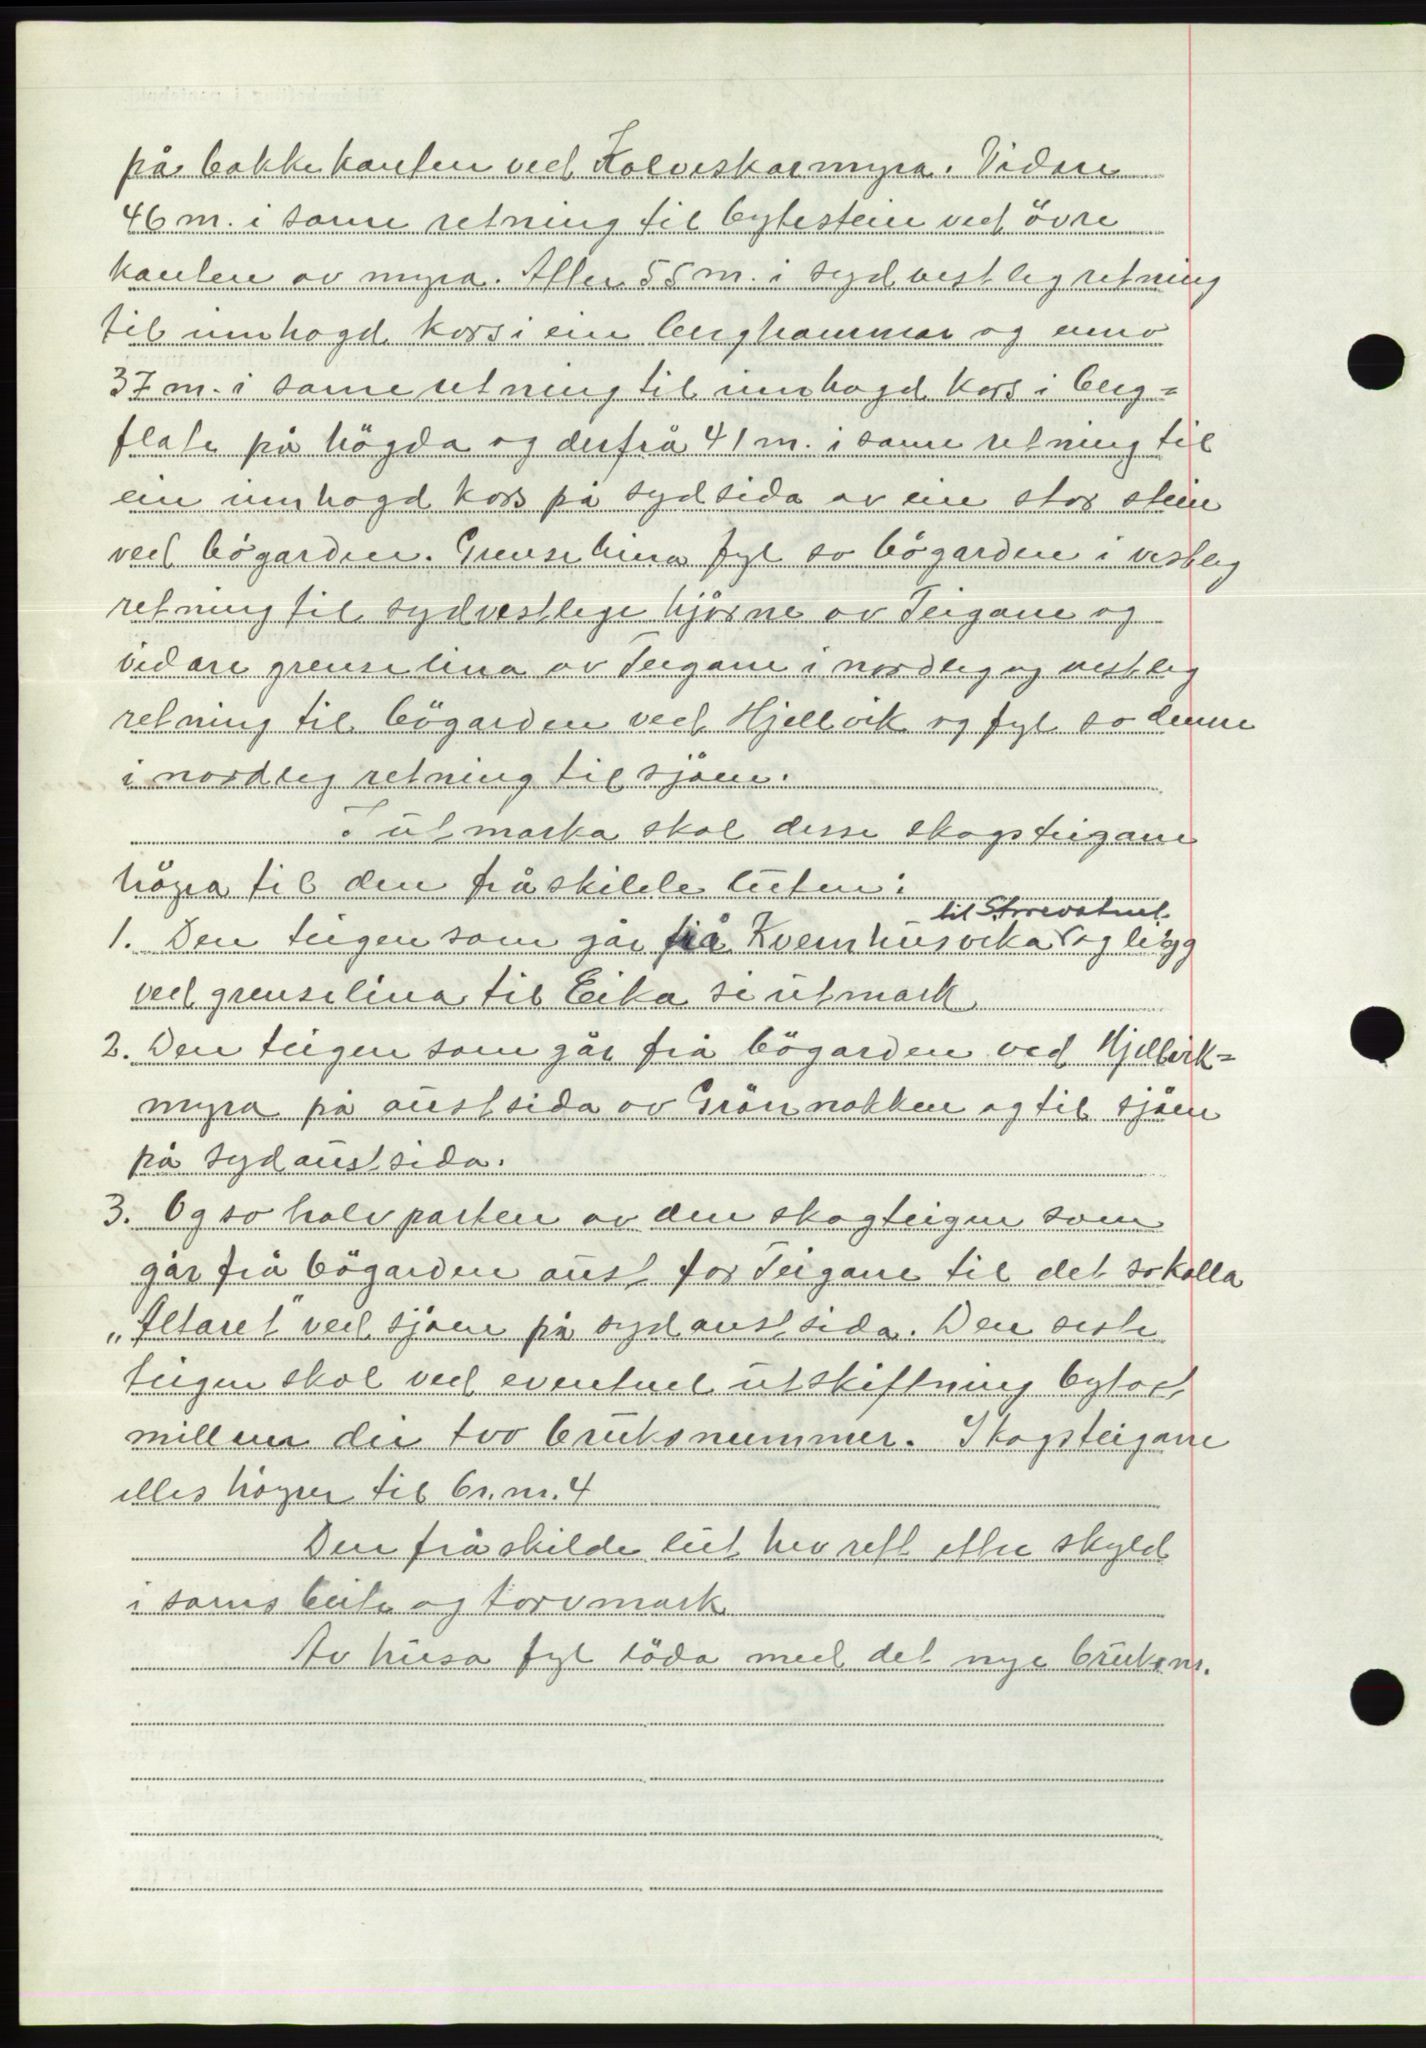 på bakkekanten ved Kalveskarmyra. Vidare
46 m. i same retning til bytestein ved övre
kanten av myra. Atter 55 m. i sydvestleg retning
til innhogd kors i ein berghammar og enno
37 m. i same retning til innhogd kors i berg=
flate på högda og derfrå 41 m. i same retning til
ein innhogd kors på sydsida av ein stor stein
ved bögarden. Grenselina fyl so bögarden i vestleg
retning til sydvestlege hjörne av Teigane og
vidare grenselina av Teigane i nordleg og vestleg
retning til bögarden ved Hjellvik og fyl so denne
i nordleg retning til sjöen.
I utmarka skal desse skogsteigane
höyra til den fråskilde luten:
1. Den teigen som går frå Kvernhusvika til Storevatnet og ligg
ved grenselina til Eika si utmark
2. Den teigen som går frå bögarden ved Hjellvik=
myra på austsida av Grönnakken og til sjöen
på sydaustsida.
3. Og so halvparten av den skogteigen som
går frå bögarden aust for Teigane til det sokalla
„Altaret" ved sjöen på sydaustsida. Den siste
teigen skal ved eventuel utskiftning bytast
millom dei tvo bruksnummer. Skogsteigane
elles höyrer til br.nr. 4
Den fråskilde lut hev rett etter skyld
i sams beite og torvmark
Av husa fyl löda med det nye bruksnr.